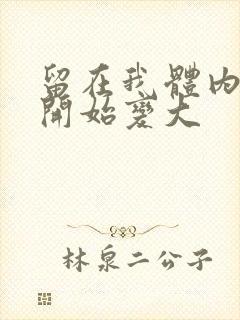 留在我體內
開始變大
林泉二公子